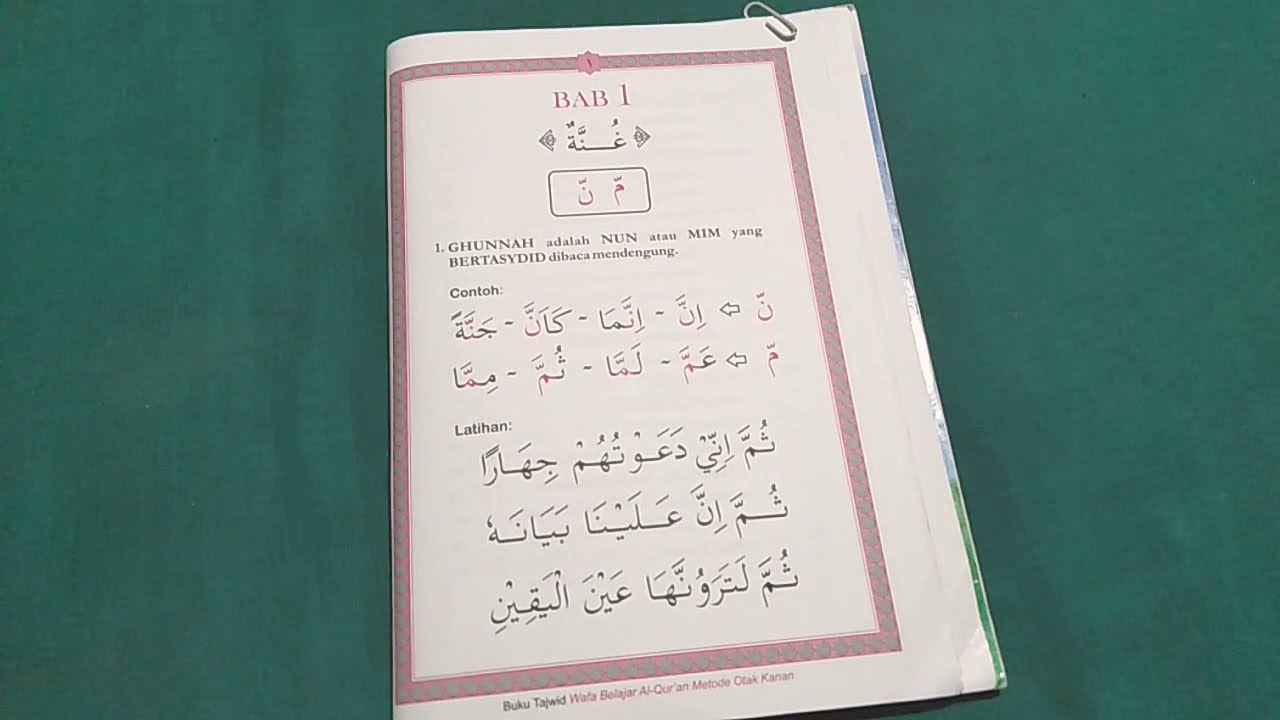 ١
BAB 1
غُـــنَّةٌ
مّ نّ
1. GHUNNAH adalah NUN atau MIM yang
BERTASYDID dibaca mendengung.
Contoh:
نّ ⇦ اِنَّ - اِنَّمَا - كَاَنَّ - جَنَّةً
مّ ⇦ عَمَّ - لَمَّا - ثُمَّ - مِمَّا
Latihan:
ثُمَّ اِنِّيْ دَعَـوْتُهُمْ جِهَـارًا
ثُــمَّ اِنَّ عَــلَيْـنَا بَيَانَــهٗ
ثُمَّ لَتَرَوُنَّهَا عَيْنَ الْيَقِيْنِ
Buku Tajwid Wafa Belajar Al-Qur'an Metode Otak Kanan